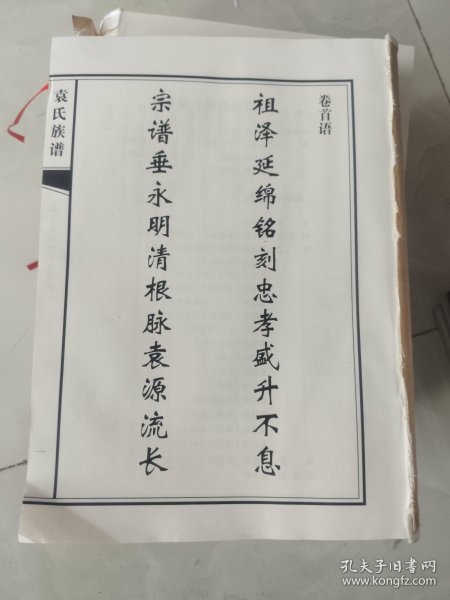 卷首语
祖泽延绵铭刻忠孝盛升不息
宗谱垂永明清根脉袁源流长
袁氏族谱
一
孔夫子旧书网
www.kongfz.com